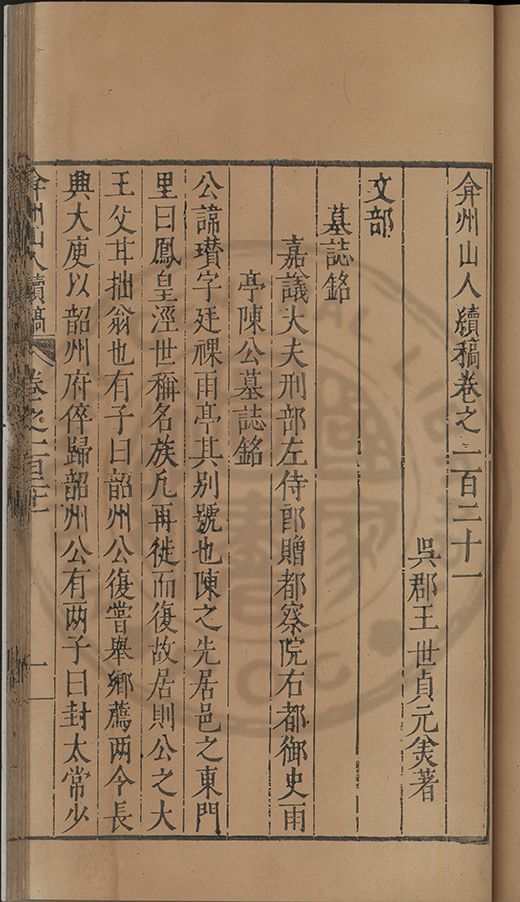 弇州山人續稿卷之一百二十一
吳郡王世貞元美著
文部
墓誌銘
嘉議大夫刑部左侍郎贈都察院右都御史雨
亭陳公墓誌銘
公諱瓚字廷祼雨亭其别號也陳之先居邑之東門
里曰鳳皇涇世稱名族凡再徙而復故居則公之大
王父耳拙翁也有子曰韶州公復嘗舉鄉薦两令長
興大庾以韶州府倅歸韶州公有两子曰封太常少
弇州山人續稿 卷之一百二十一 一